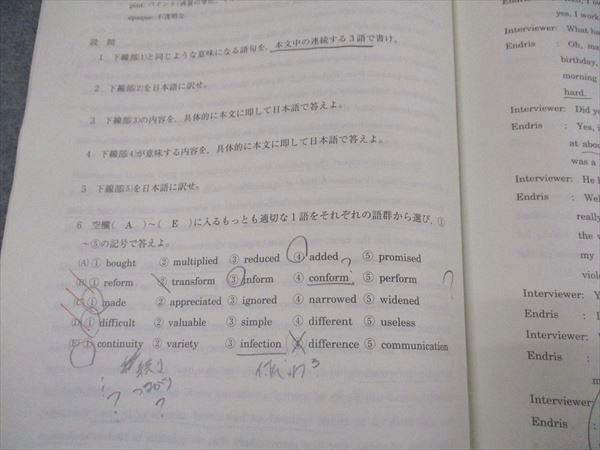 pint: パイント (液量の単位,
opaque: 不透明な
設 問
1 下線部(1)と同じような意味になる語句を,本文中の連続する3語で書け。
2 下線部(2)を日本語に訳せ。
3 下線部(3)の内容を,具体的に本文に即して日本語で答えよ。
4 下線部(4)が意味する内容を,具体的に本文に即して日本語で答えよ。
5 下線部(5)を日本語に訳せ。
6 空欄( A )~( E )に入るもっとも適切な1語をそれぞれの語群から選び,①
~⑤の記号で答えよ。
(A) ① bought ② multiplied ③ reduced ④ added ⑤ promised
(B) ① reform ② transform ③ inform ④ conform ⑤ perform
(C) ① made ② appreciated ③ ignored ④ narrowed ⑤ widened
(D) ① difficult ② valuable ③ simple ④ different ⑤ useless
(E) ① continuity ② variety ③ infection ④ difference ⑤ communication
?
?
yes, I work
Interviewer: What ha
Endris : Oh, ma
birthday,
morning
hard.
Interviewer: Did yo
Endris : Yes, i
at abou
was a
Interviewer: He l
Endris : Wel
really
the v
my
viole
Interviewer: Y
Endris : I
Interviewer:
Endris :
m
Interviewer:
Endris :